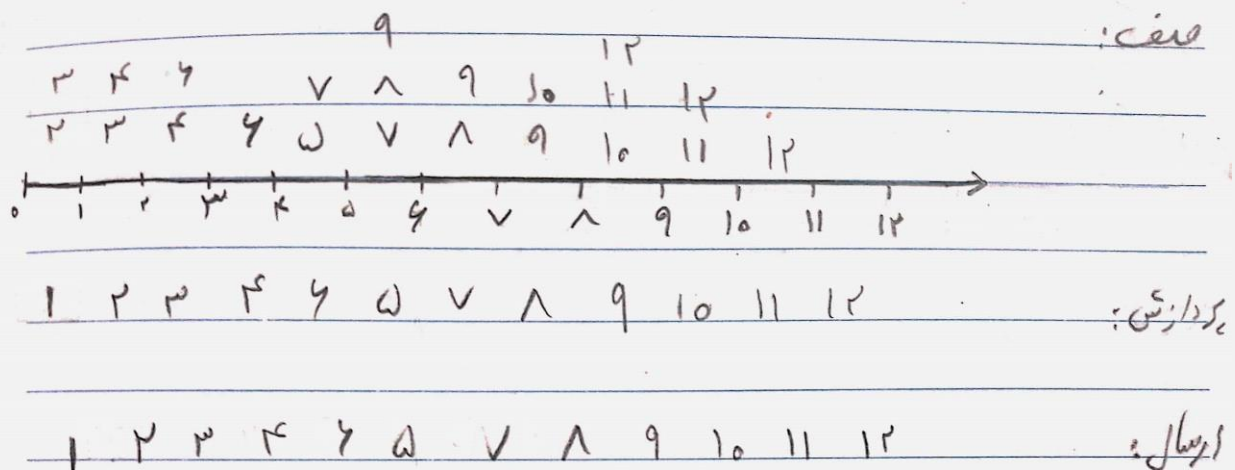 صف:
۹ ۱۲
۳ ۴ ۶ ۷ ۸ ۹ ۱۰ ۱۱ ۱۲
۲ ۳ ۴ ۶ ۵ ۷ ۸ ۹ ۱۰ ۱۱ ۱۲
۰ ۱ ۲ ۳ ۴ ۵ ۶ ۷ ۸ ۹ ۱۰ ۱۱ ۱۲
پردازش: ۱ ۲ ۳ ۴ ۶ ۵ ۷ ۸ ۹ ۱۰ ۱۱ ۱۲
ارسال: ۱ ۲ ۳ ۴ ۶ ۵ ۷ ۸ ۹ ۱۰ ۱۱ ۱۲